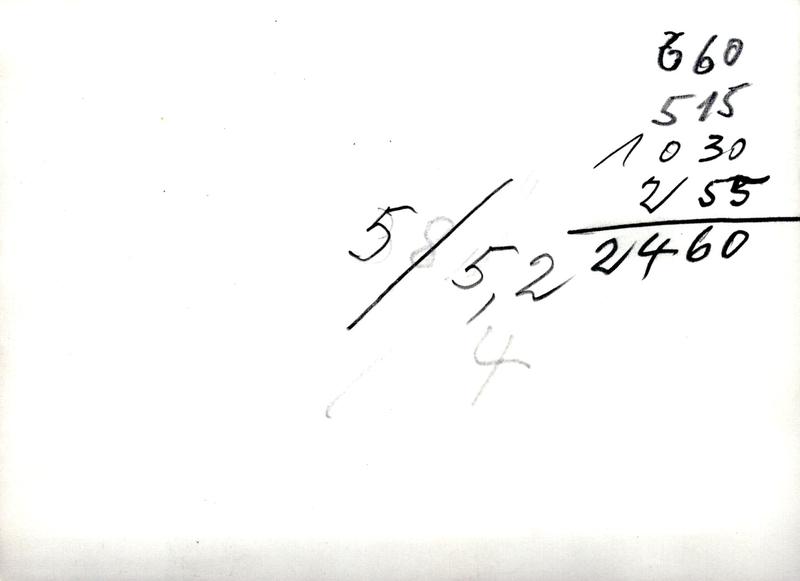 660
515
1030
255
2460
5/5,2
8
4